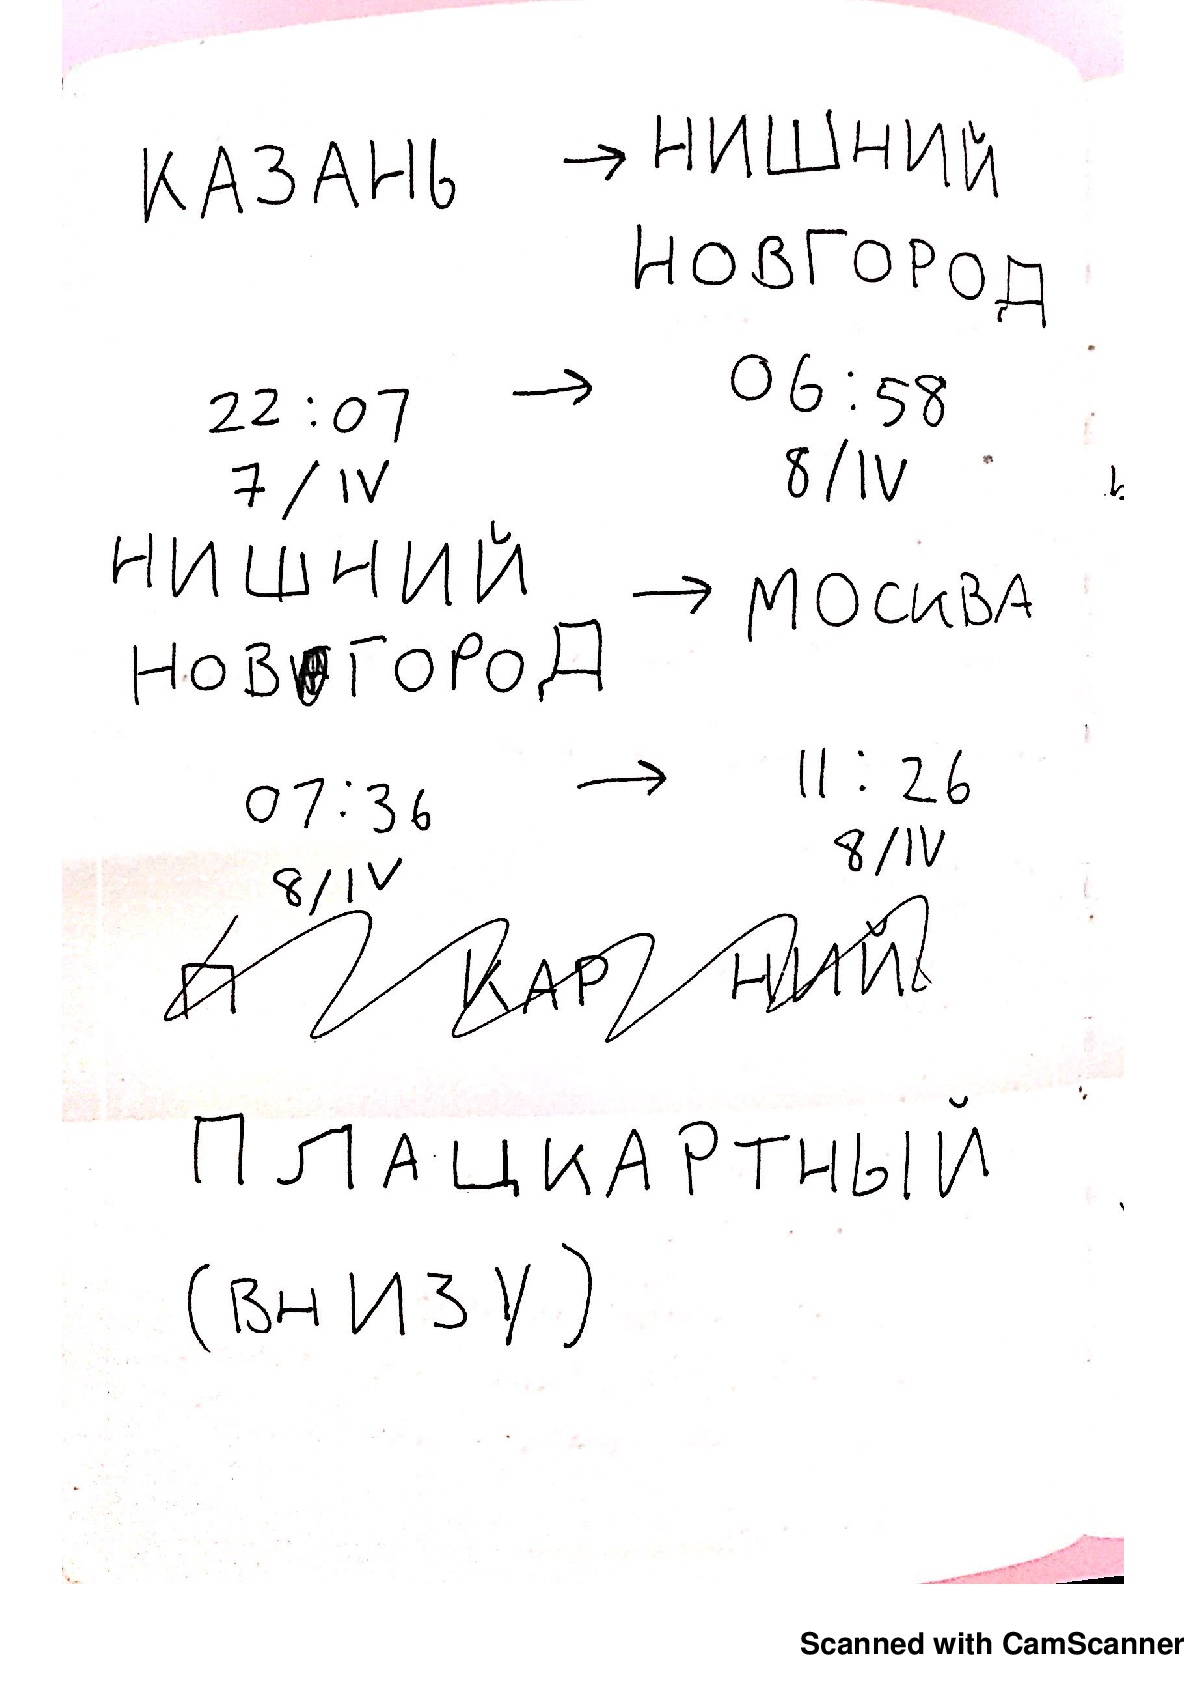 КАЗАНЬ → НИШНИЙ
НОВГОРОД
22:07 → 06:58
7/IV 8/IV
НИШНИЙ
НОВГОРОД → МОСКВА
07:36 → 11:26
8/IV 8/IV
П КАР НИЙ
ПЛАЦКАРТНЫЙ
(ВНИЗУ)
Scanned with CamScanner